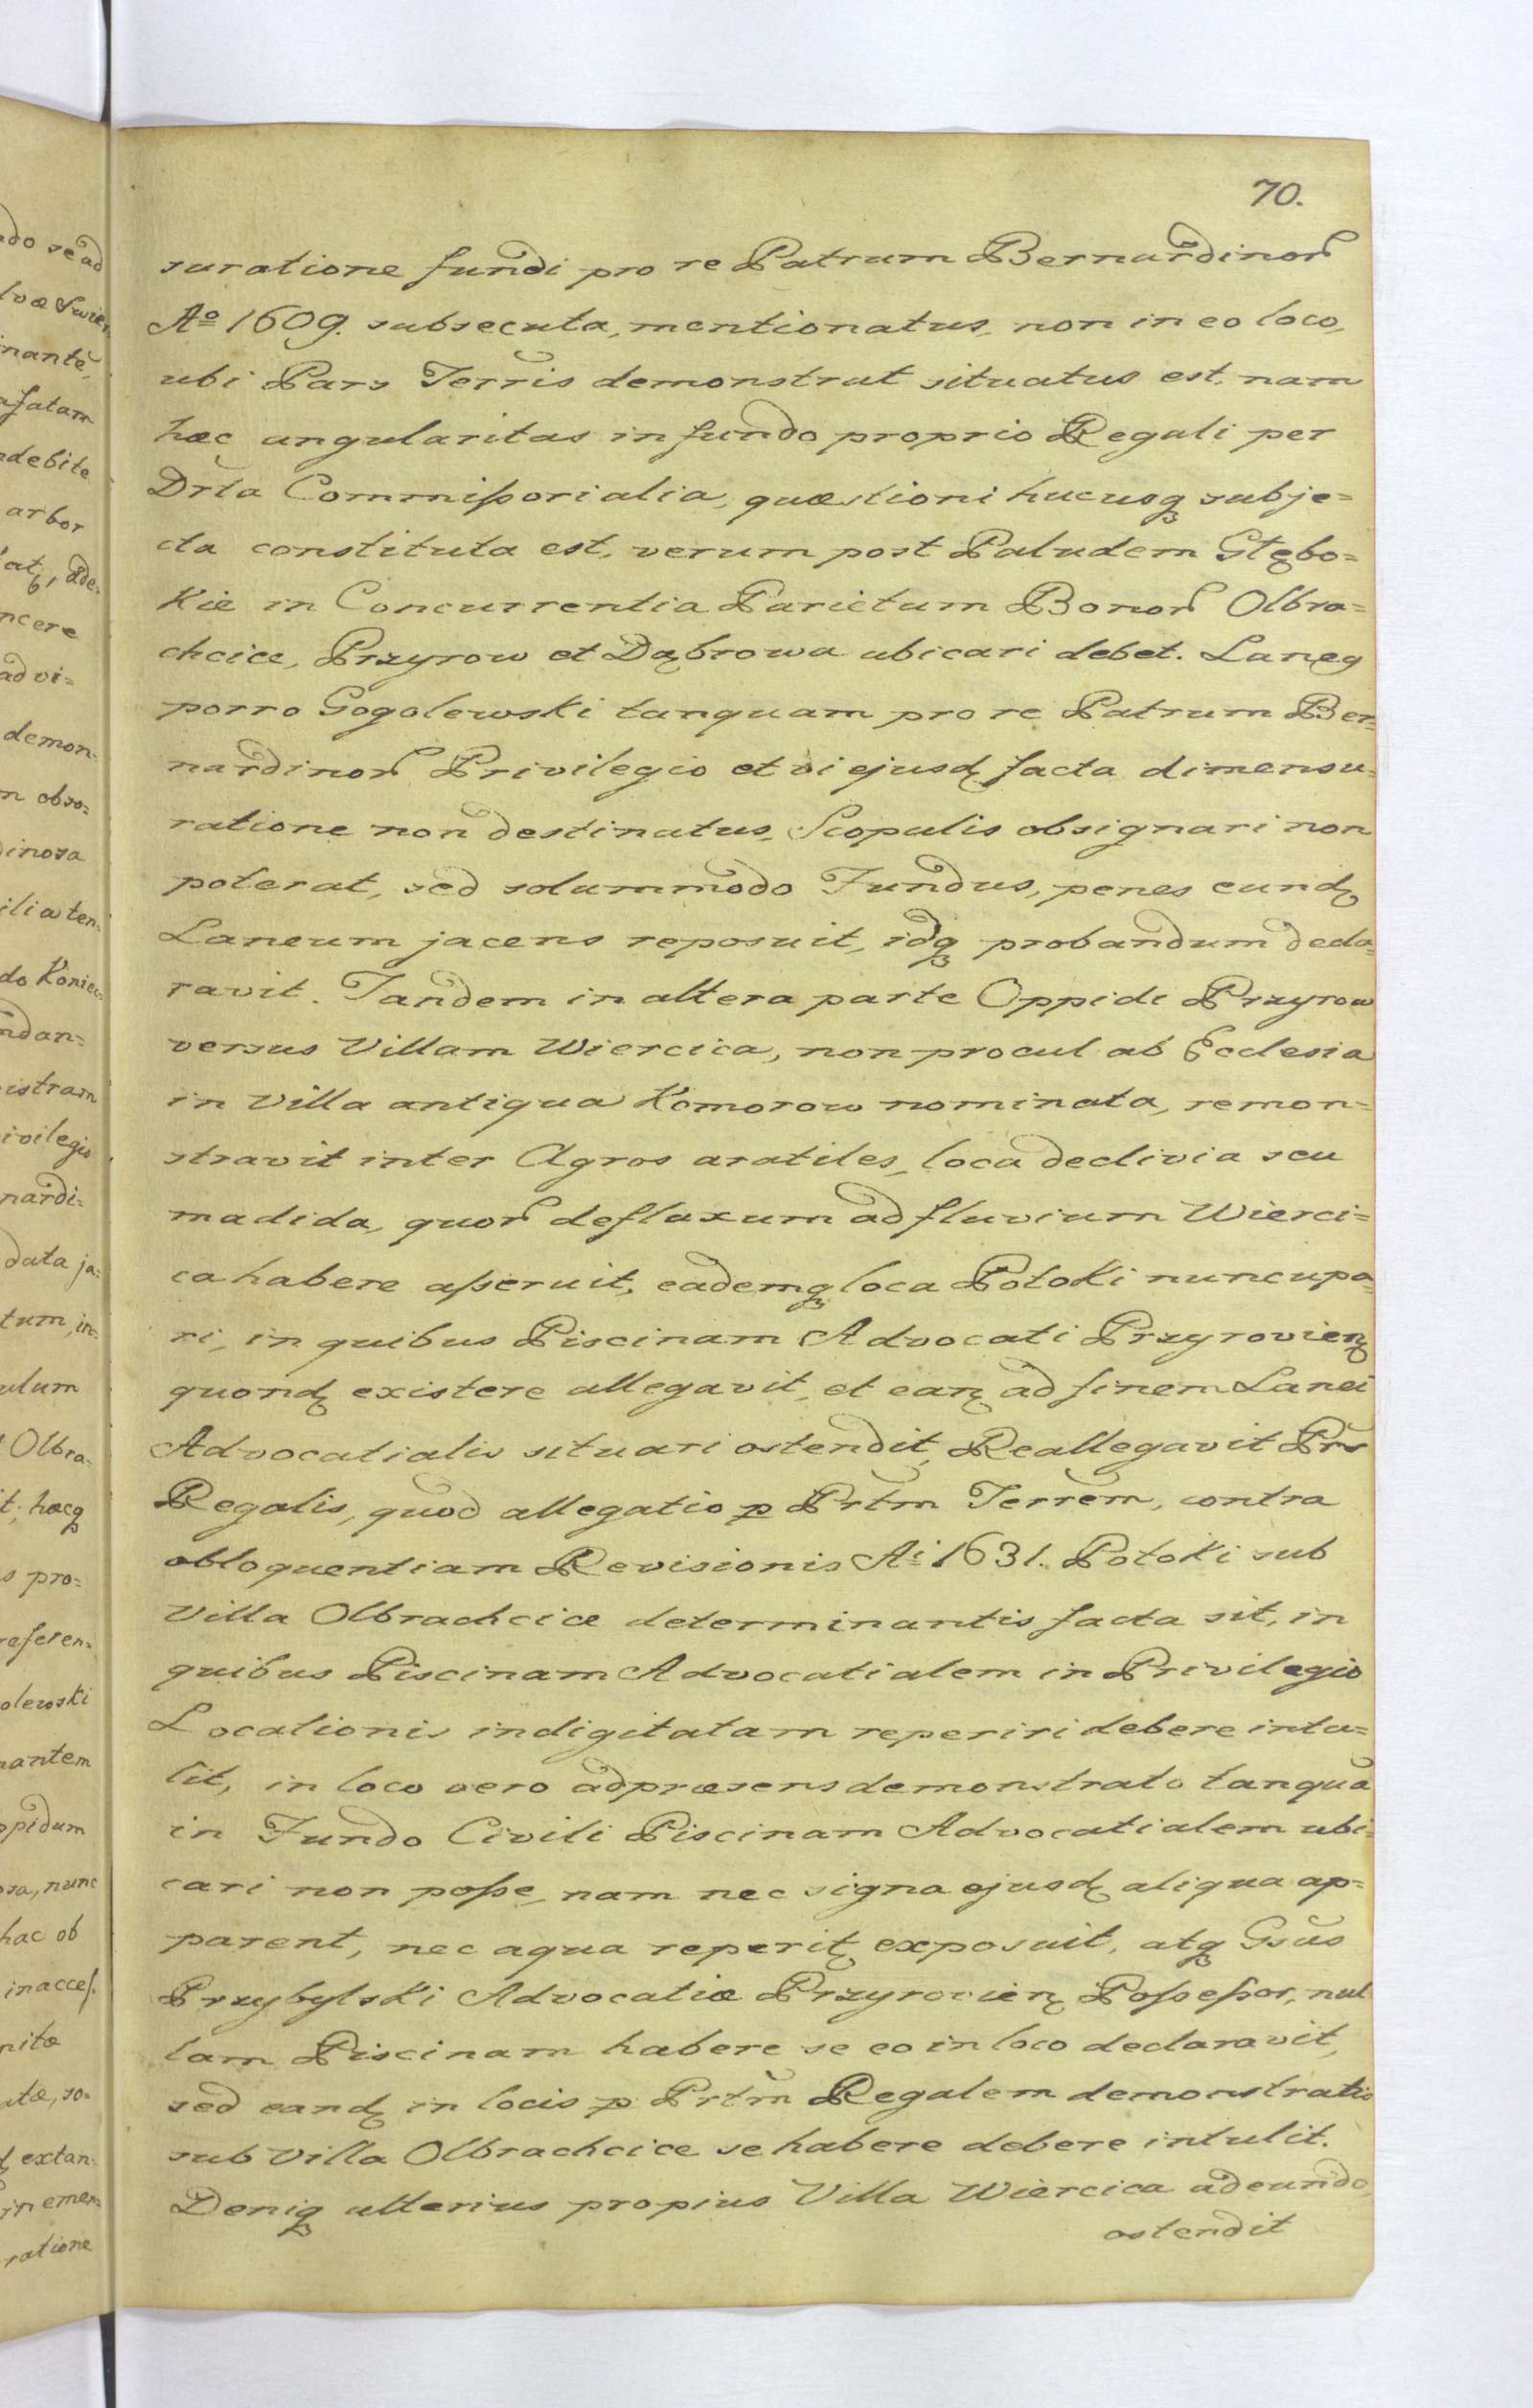 70.
suratione fundi pro re Patrum Bernardinor
Aº 1609. subsecuta, mentionatus, non in eo loco,
ubi Pars Terris demonstrat situatus est, nam
hæc angularitas in fundo proprio Regali per
Drta Commißorialia, quæstioni hucusq subje=
cta constituta est, verum post Paludem Głębo=
kie in Concurrentia Parietum Bonor Olbra=
chcice, Przyrow et Dąbrowa ubicari debet. Laneg
porro Gogolewski tanquam pro re Patrum Ber=
nardinor Privilegio et vi ejusd facta dimensu=
ratione non destinatus, Scopulis obsignari non
poterat, sed solummodo Fundus, penes eund
Laneum jacens reposuit, idq probandum decla=
ravit. Tandem in altera parte Oppidi Przyrow
versus Villam Wiercica, non procul ab Ecclesia
in Villa antiqua Komorow nominata, remon=
stravit inter Agros aratiles, loca declivia seu
madida, quor defluxum ad fluvium Wierci=
ca habere aßeruit, eademq loca Potoki nuncupa=
ri, in quibus Piscinam Advocati Przyrovien
quond existere allegavit, et ean ad finem Lanei
Advocatialis situari ostendit, Reallegavit Prs
Regalis, quod allegatio p Prtm Terrem, contra
obloquentiam Revisionis Ai 1631. Potoki sub
Villa Olbrachcice determinantis facta sit, in
quibus Piscinam Advocatialem in Privilegio
Locationis indigitatam reperiri debere intu=
lit, in loco vero ad præsens demonstrato tanquā
in Fundo Civili Piscinam Advocatialem ubi=
cari non poße, nam nec signa ejusd aliqua ap=
parent, nec aqua reperit exposuit, atq Gsus
Przybylski Advocatiæ Przyrovien Poßeßor, nul
lam Piscinam habere se eo in loco declaravit,
sed eand in locis p Prtm Regalem demonstratis
sub Villa Olbrachcice se habere debere intulit.
Deniq ulterius propius Villa Wiercica adeundo,
ostendit